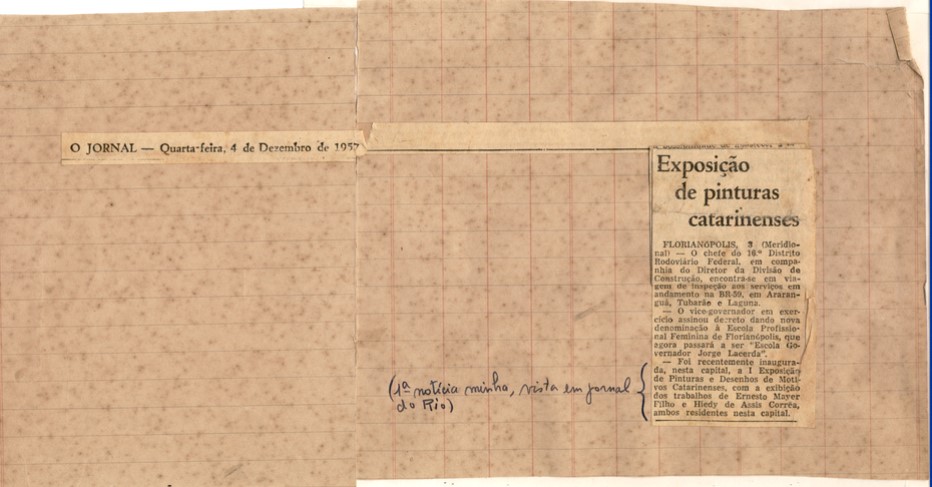 O JORNAL — Quarta-feira, 4 de Dezembro de 1957
Exposição
de pinturas
catarinenses
FLORIANÓPOLIS, 3 (Meridio-
nal) — O chefe do 16.º Distrito
Rodoviário Federal, em compa-
nhia do Diretor da Divisão de
Construção, encontra-se em via-
gem de inspeção aos serviços em
andamento na BR-59, em Araran-
guá, Tubarão e Laguna.
— O vice-governador em exer-
cício assinou decreto dando nova
denominação à Escola Profissio-
nal Feminina de Florianópolis, que
agora passará a ser "Escola Go-
vernador Jorge Lacerda".
— Foi recentemente inaugura-
da, nesta capital, a I Exposição
de Pinturas e Desenhos de Moti-
vos Catarinenses, com a exibição
dos trabalhos de Ernesto Mayer
Filho e Hiedy de Assis Corrêa,
ambos residentes nesta capital.
(1ª notícia minha, vista em jornal
do Rio)